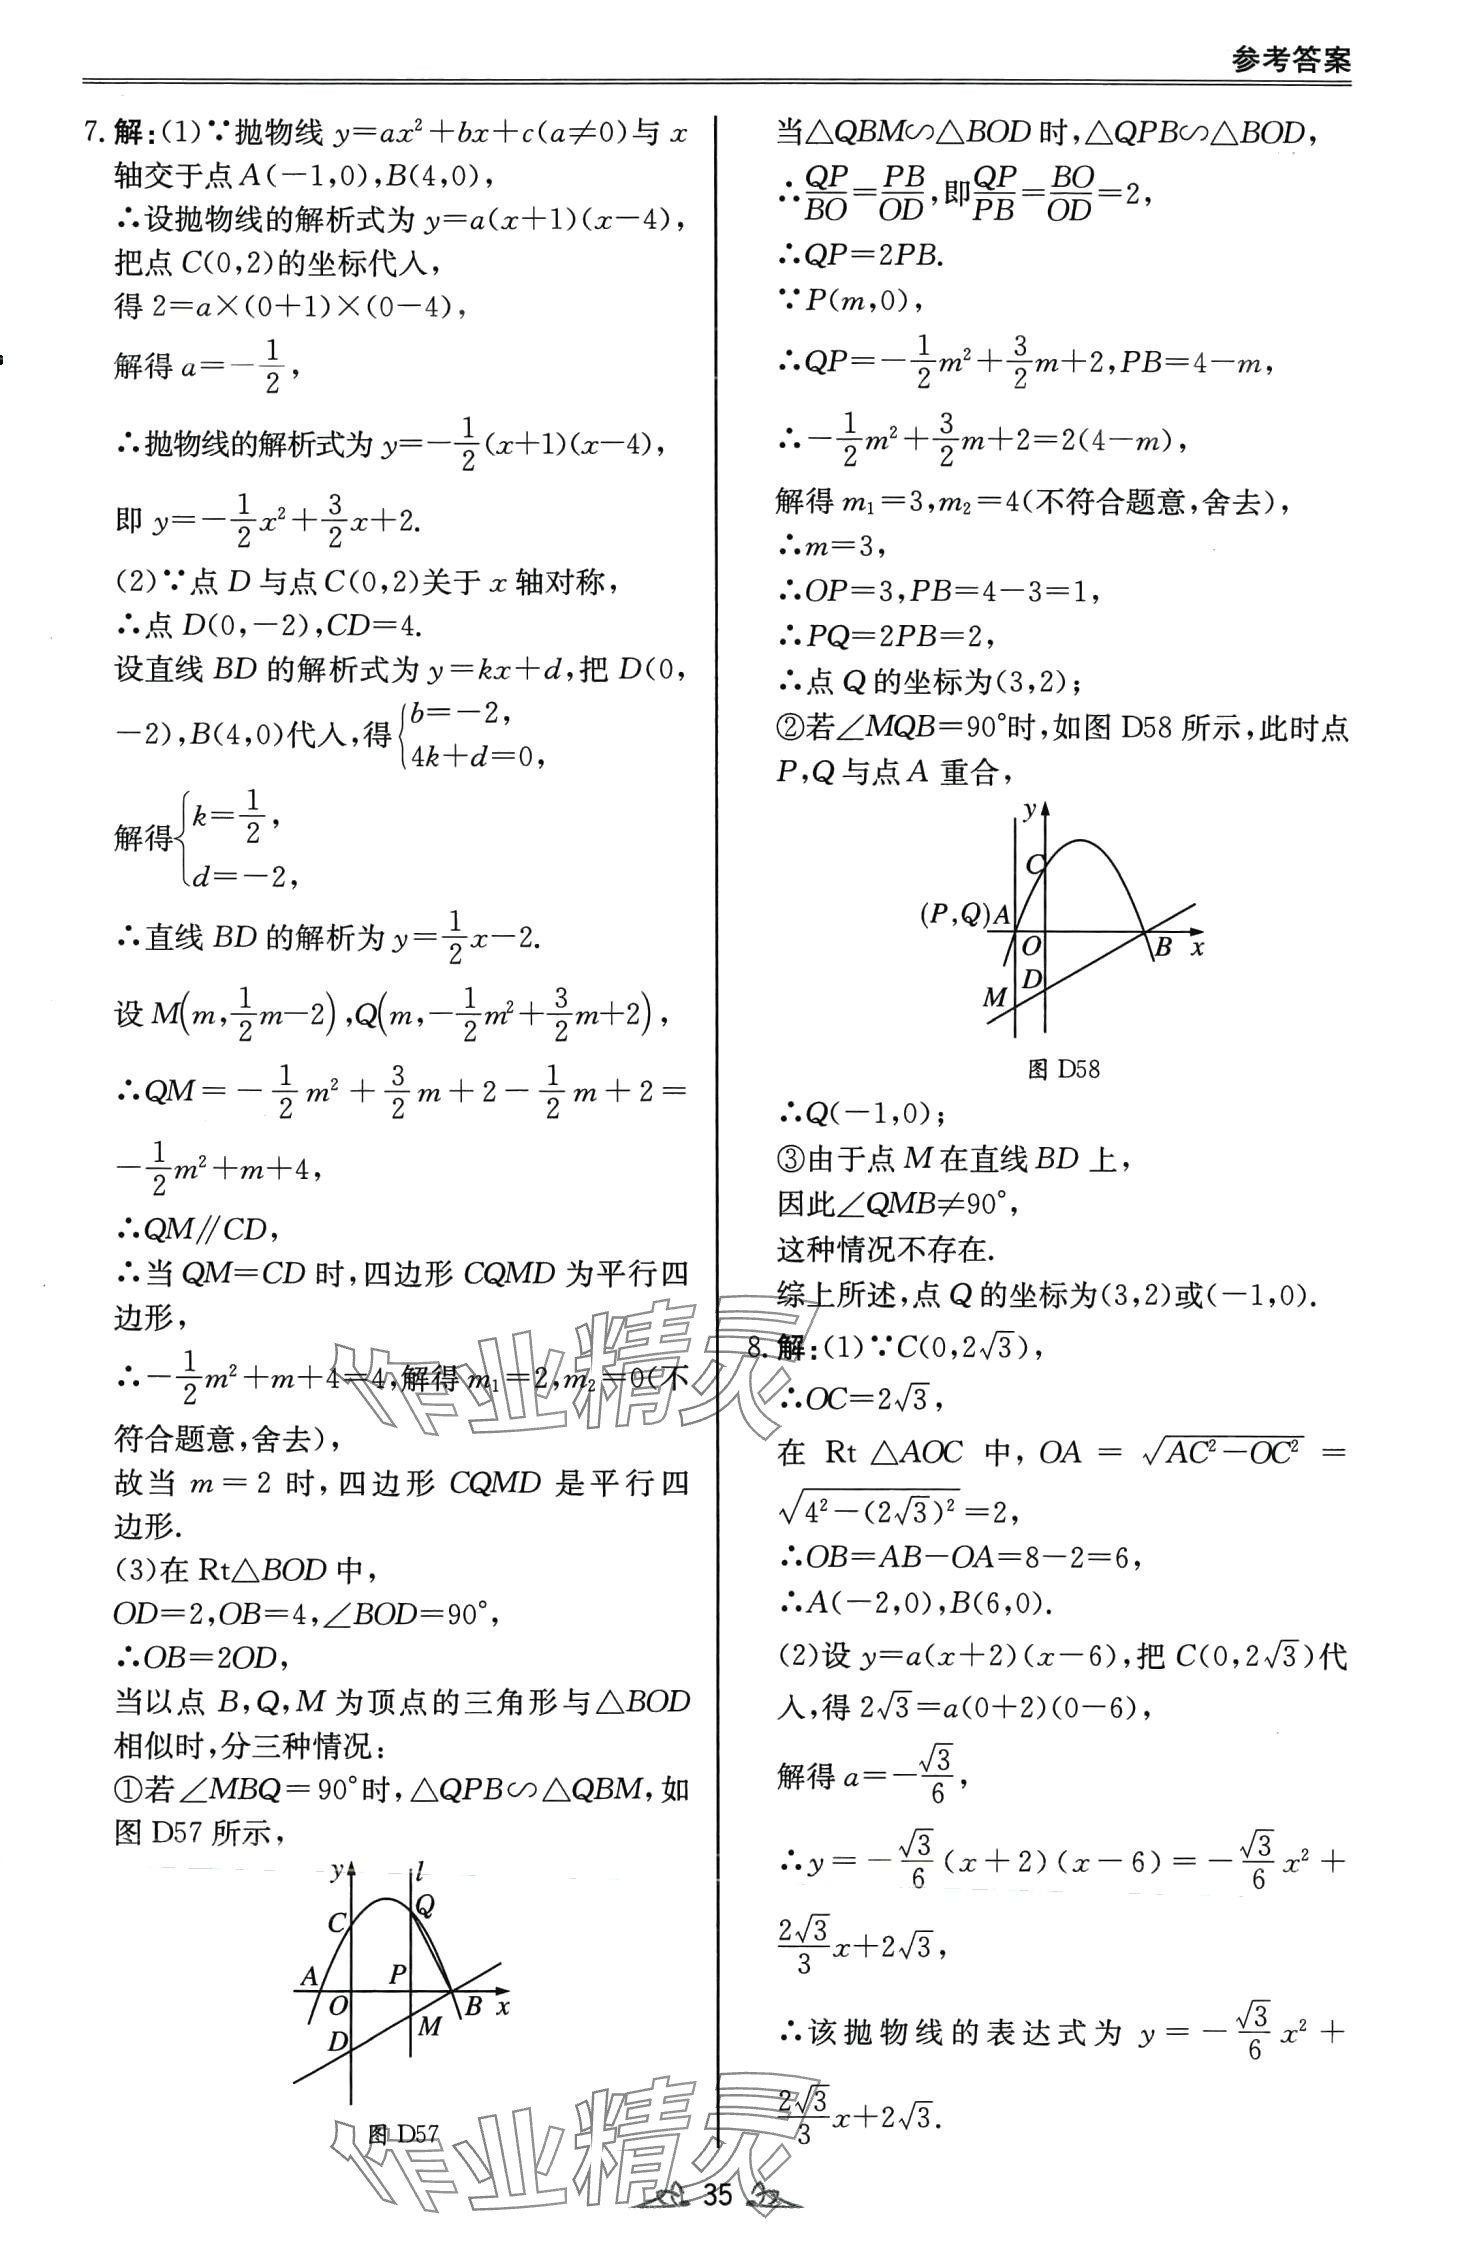 参考答案
7. 解:(1)∵抛物线 y=ax²+bx+c(a≠0)与 x
轴交于点 A(-1,0),B(4,0),
∴设抛物线的解析式为 y=a(x+1)(x-4),
把点 C(0,2)的坐标代入,
得 2=a×(0+1)×(0-4),
解得 a=-1/2,
∴抛物线的解析式为 y=-1/2(x+1)(x-4),
即 y=-1/2x²+3/2x+2.
(2)∵点 D 与点 C(0,2)关于 x 轴对称,
∴点 D(0,-2),CD=4.
设直线 BD 的解析式为 y=kx+d,把 D(0,
-2),B(4,0)代入,得{b=-2, 4k+d=0,
解得{k=1/2, d=-2,
∴直线 BD 的解析为 y=1/2x-2.
设 M(m,1/2m-2),Q(m,-1/2m²+3/2m+2),
∴QM=-1/2m²+3/2m+2-1/2m+2=
-1/2m²+m+4,
∴QM∥CD,
∴当 QM=CD 时,四边形 CQMD 为平行四
边形,
∴-1/2m²+m+4=4,解得 m₁=2,m₂=0(不
符合题意,舍去),
故当 m=2 时,四边形 CQMD 是平行四
边形.
(3)在 Rt△BOD 中,
OD=2,OB=4,∠BOD=90°,
∴OB=2OD,
当以点 B,Q,M 为顶点的三角形与△BOD
相似时,分三种情况:
①若∠MBQ=90°时,△QPB∽△QBM,如
图 D57 所示,
y
l
Q
C
A
P
O
B
x
M
D
图 D57
当△QBM∽△BOD 时,△QPB∽△BOD,
∴QP/BO=PB/OD,即QP/PB=BO/OD=2,
∴QP=2PB.
∵P(m,0),
∴QP=-1/2m²+3/2m+2,PB=4-m,
∴-1/2m²+3/2m+2=2(4-m),
解得 m₁=3,m₂=4(不符合题意,舍去),
∴m=3,
∴OP=3,PB=4-3=1,
∴PQ=2PB=2,
∴点 Q 的坐标为(3,2);
②若∠MQB=90°时,如图 D58 所示,此时点
P,Q 与点 A 重合,
y
C
(P,Q)A
O
B
x
D
M
图 D58
∴Q(-1,0);
③由于点 M 在直线 BD 上,
因此∠QMB≠90°,
这种情况不存在.
综上所述,点 Q 的坐标为(3,2)或(-1,0).
8. 解:(1)∵C(0,2√3),
∴OC=2√3,
在 Rt △AOC 中, OA = √(AC²-OC²) =
√(4²-(2√3)²)=2,
∴OB=AB-OA=8-2=6,
∴A(-2,0),B(6,0).
(2)设 y=a(x+2)(x-6),把 C(0,2√3)代
入,得 2√3=a(0+2)(0-6),
解得 a=-√3/6,
∴y=-√3/6(x+2)(x-6)=-√3/6x²+
2√3/3x+2√3,
∴该抛物线的表达式为 y=-√3/6x²+
2√3/3x+2√3.
作业精灵
作业精灵
35